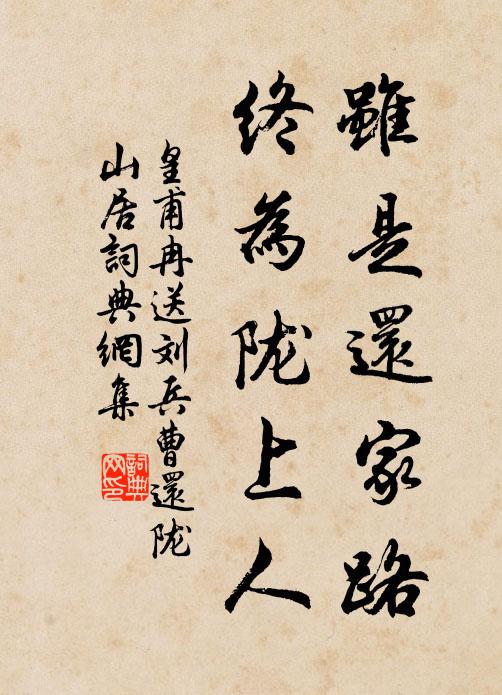 雖是還家路
終為陇上人
皇甫冉送刘兵曹還陇
山居詞典網集
詞典
网印